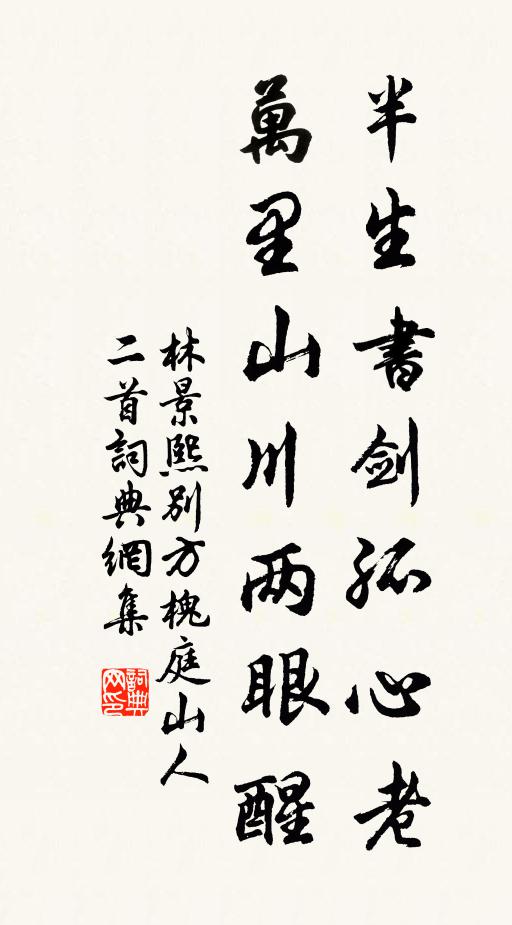 半生書劍孤心老
萬里山川两眼醒
林景熙別方槐庭山人
二首詞典網集
詞典網印